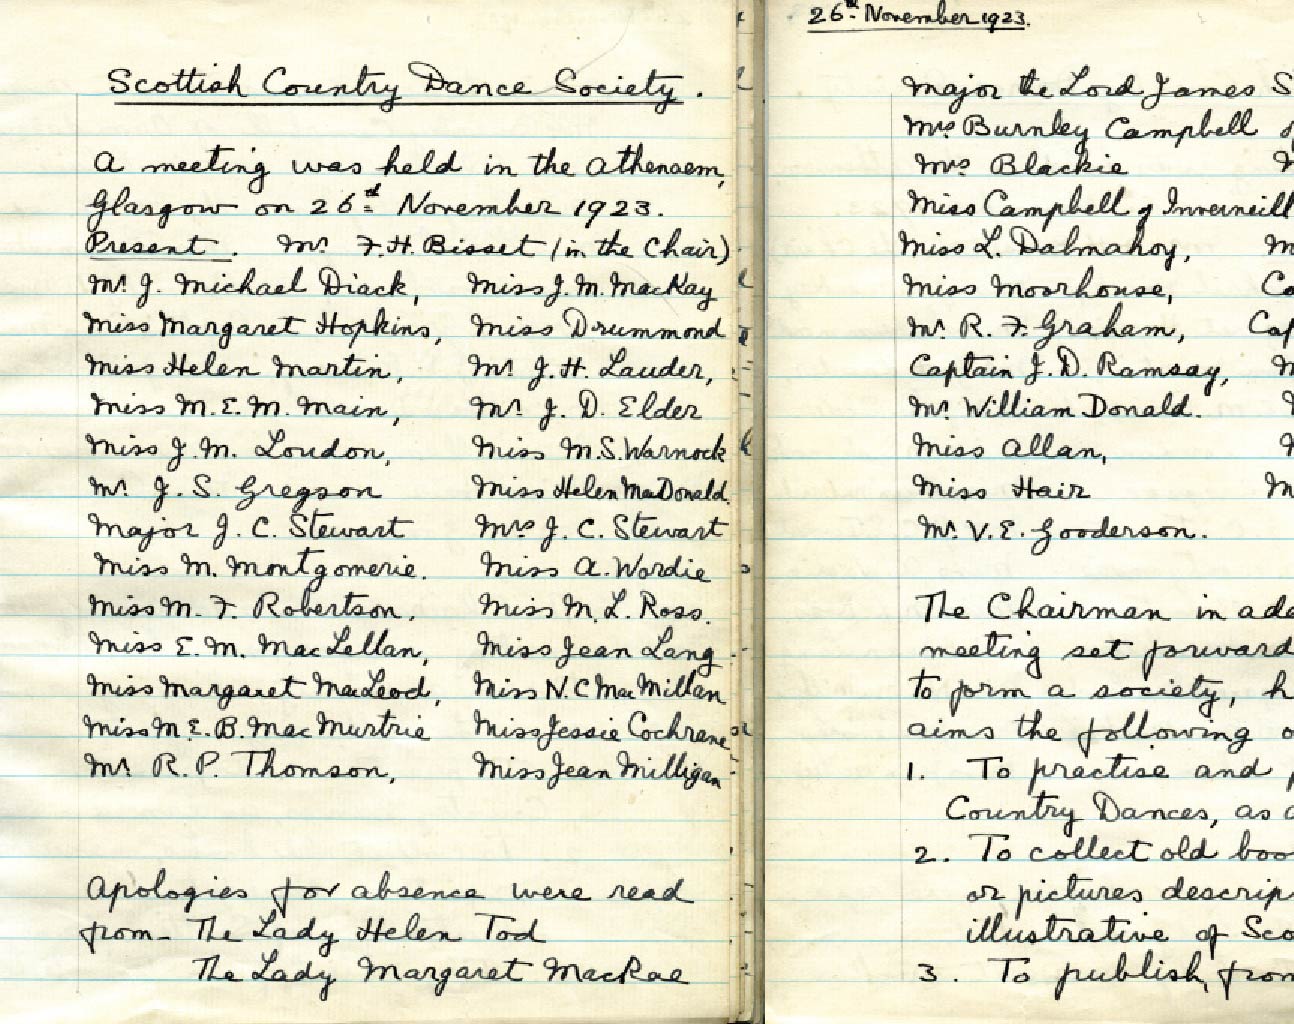 Scottish Country Dance Society.
A meeting was held in the Athenaem,
Glasgow on 26th November 1923.
Present. Mr. F.H. Bisset (in the Chair)
Mr. J. Michael Diack, Miss J.M. MacKay
Miss Margaret Hopkins, Miss Drummond
Miss Helen Martin, Mr. J.H. Lauder,
Miss M.E.M. Main, Mr. J.D. Elder
Miss J.M. Loudon, Miss M.S. Warnock
Mr. J.S. Gregson Miss Helen MacDonald.
Major J.C. Stewart Mrs J.C. Stewart
Miss M. Montgomerie. Miss A. Wordie
Miss M.F. Robertson, Miss M.L. Ross.
Miss E.M. MacLellan, Miss Jean Lang
Miss Margaret MacLeod, Miss N.C MacMillan
Miss M.E.B. MacMurtrie Miss Jessie Cochrane
Mr. R.P. Thomson, Miss Jean Milligan
Apologies for absence were read
from - The Lady Helen Tod
The Lady Margaret MacRae
26th November 1923.
Major the Lord James S
Mrs Burnley Campbell
Mrs Blackie
Miss Campbell of Inverneill
Miss L. Dalmahoy,
Miss Moorhouse,
Mr. R.F. Graham,
Captain J.D. Ramsay,
Mr. William Donald.
Miss Allan,
Miss Hair
Mr. V.E. Gooderson.
The Chairman in ad
meeting set forward
to form a society, h
aims the following o
1. To practise and p
Country Dances, as
2. To collect old boo
or pictures descrip
illustrative of Sco
3. To publish, from